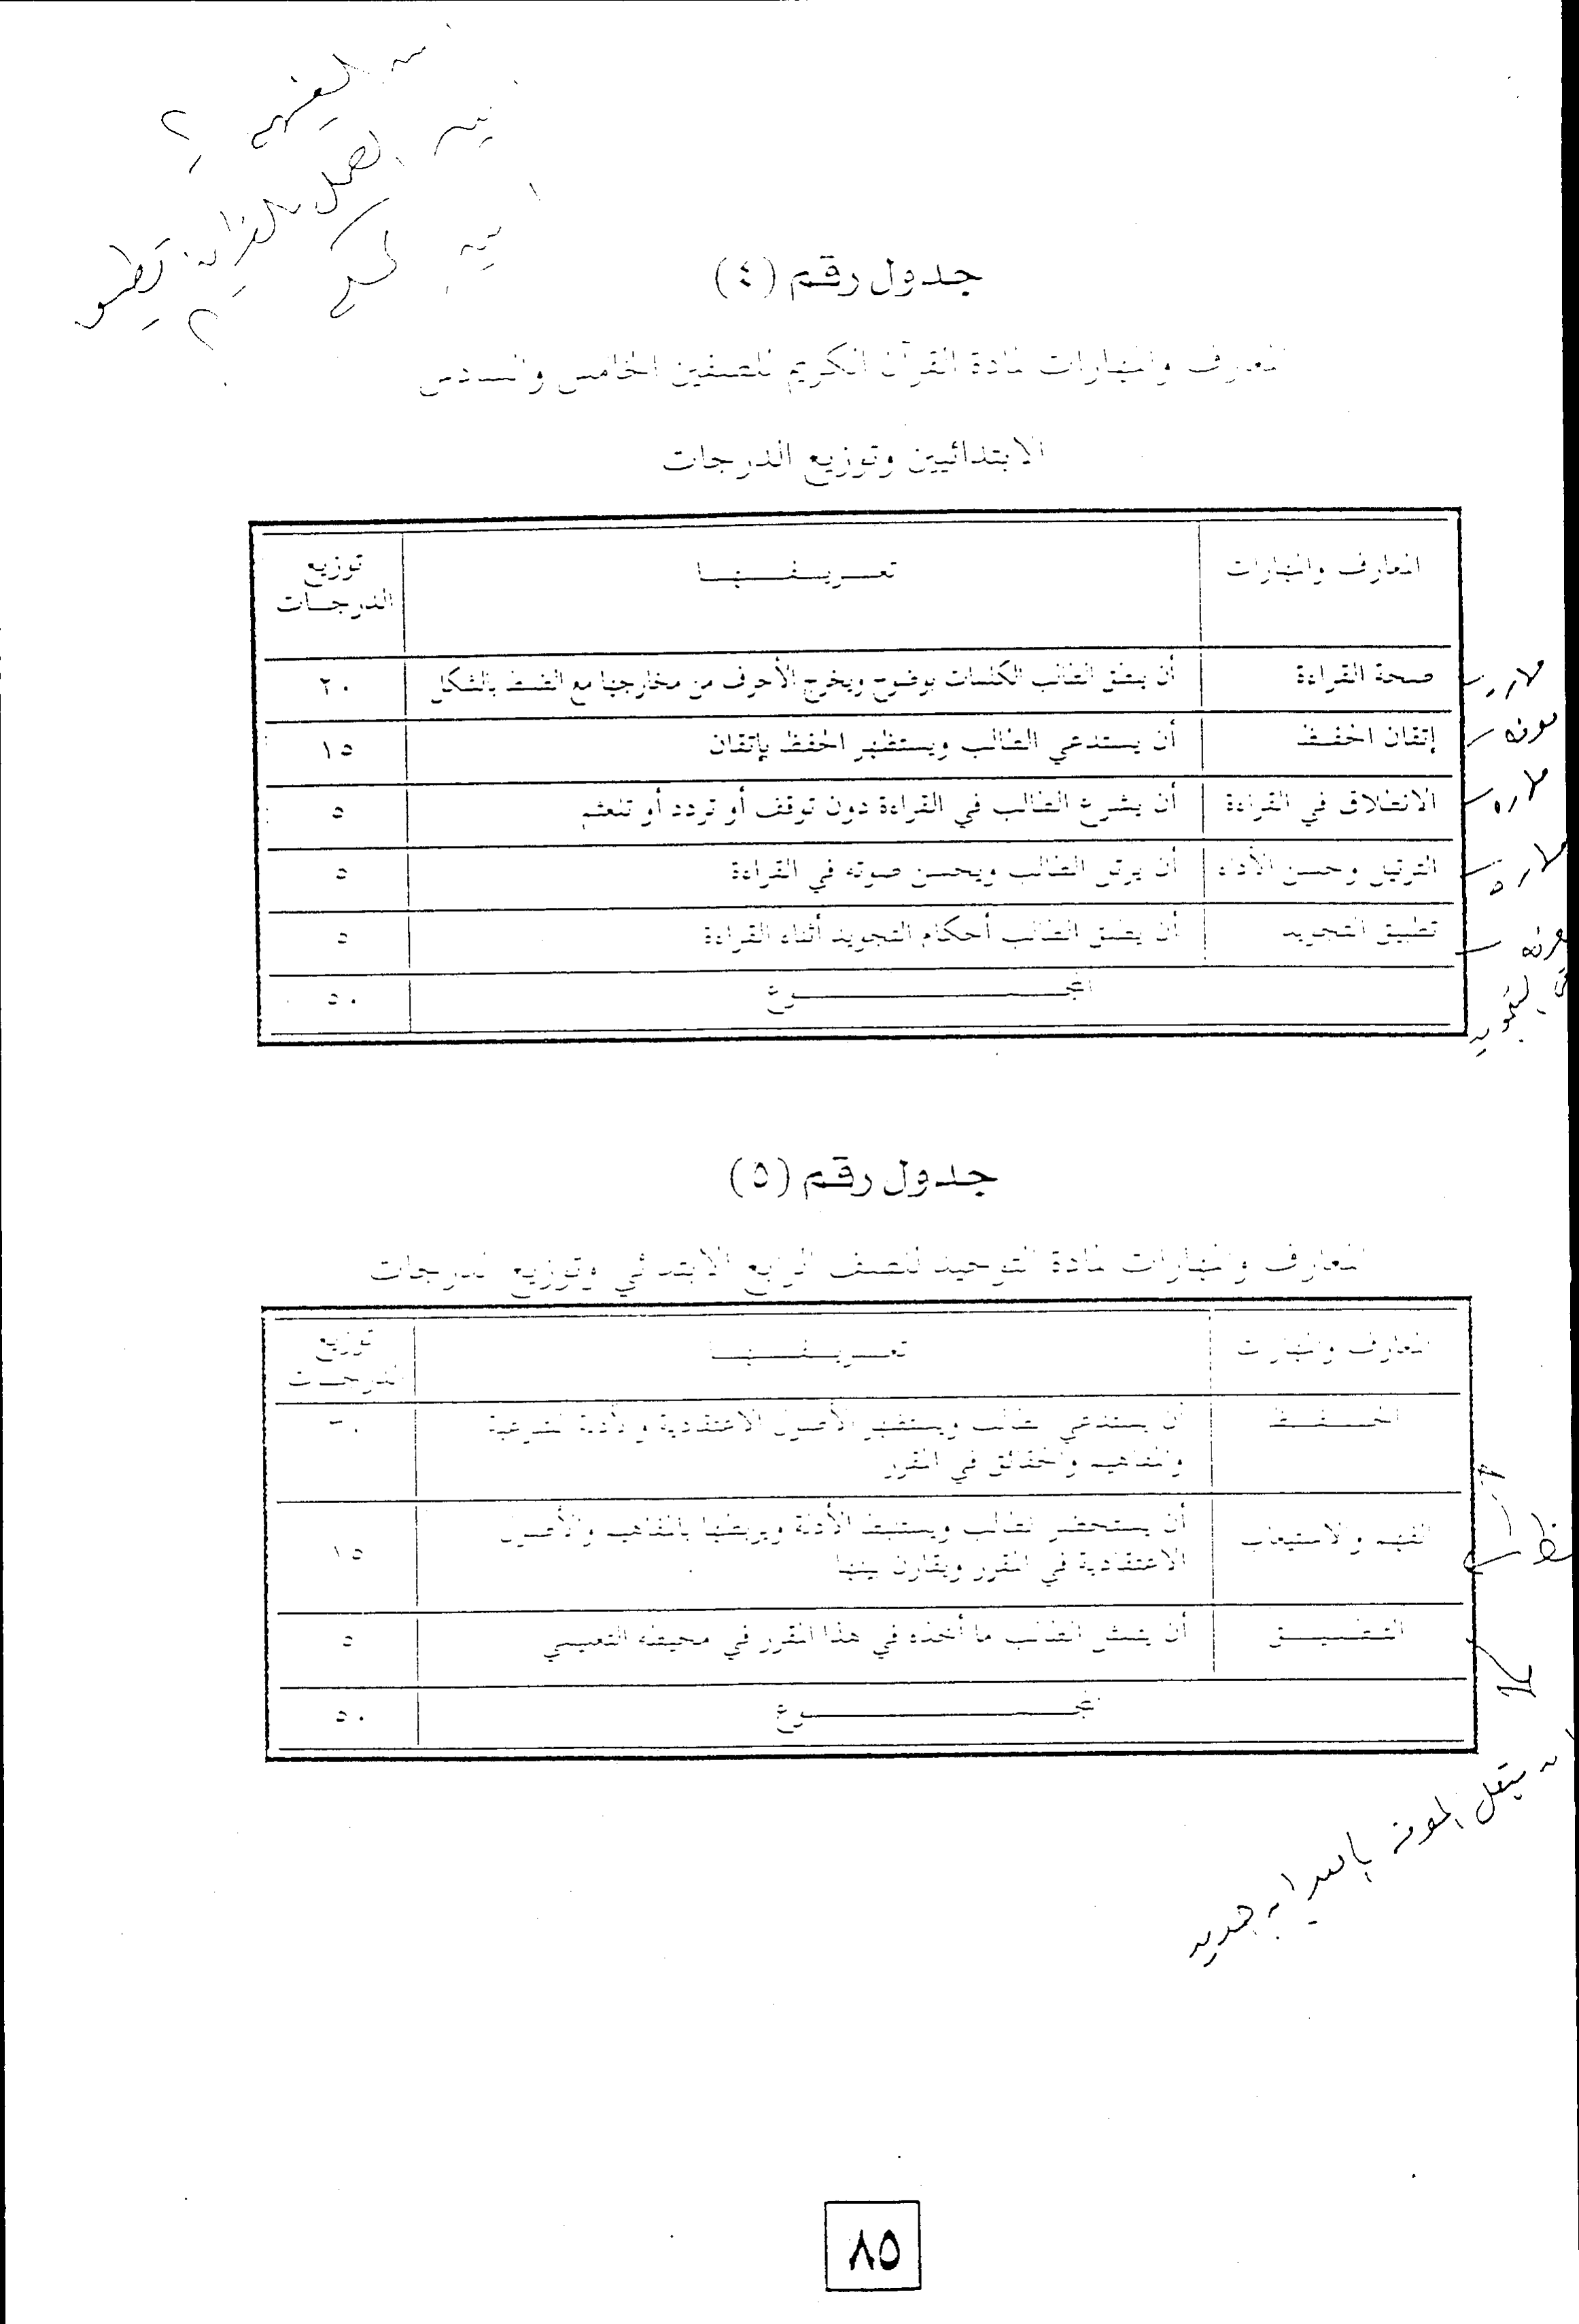 جدول رقم (٤)
المعارف والمهارات لمادة القرآن الكريم للصفين الخامس والسادس
الابتدائيين وتوزيع الدرجات
المعارف والمهارات تعريفها توزيع الدرجات
صحة القراءة أن ينطق الطالب الكلمات بوضوح ويخرج الأحرف من مخارجها مع الضبط بالشكل ٢٠
إتقان الحفظ أن يستدعي الطالب ويستظهر الحفظ بإتقان ١٥
الانطلاق في القراءة أن يشرع الطالب في القراءة دون توقف أو تردد أو تلعثم ٥
الترتيل وحسن الأداء أن يرتل الطالب ويحسن صوته في القراءة ٥
تطبيق التجويد أن يطبق الطالب أحكام التجويد أثناء القراءة ٥
المجموع ٥٠
مهاره
معرفه
مهاره
مهاره
معرفه
التجويد
جدول رقم (٥)
المعارف والمهارات لمادة التوحيد للصف الرابع الابتدائي وتوزيع الدرجات
المعارف والمهارات تعريفها توزيع الدرجات
الحفظ أن يستدعي الطالب ويستظهر الأصول الاعتقادية والأدلة الشرعية
والمفاهيم والحقائق في المقرر ٣٠
الفهم والاستيعاب أن يستحضر الطالب ويستنبط الأدلة ويربطها بالمفاهيم والأصول
الاعتقادية في المقرر ويقارن بينها ١٥
التطبيق أن يتمثل الطالب ما أخذه في هذا المقرر في محيطه التعليمي ٥
المجموع ٥٠
٨٥